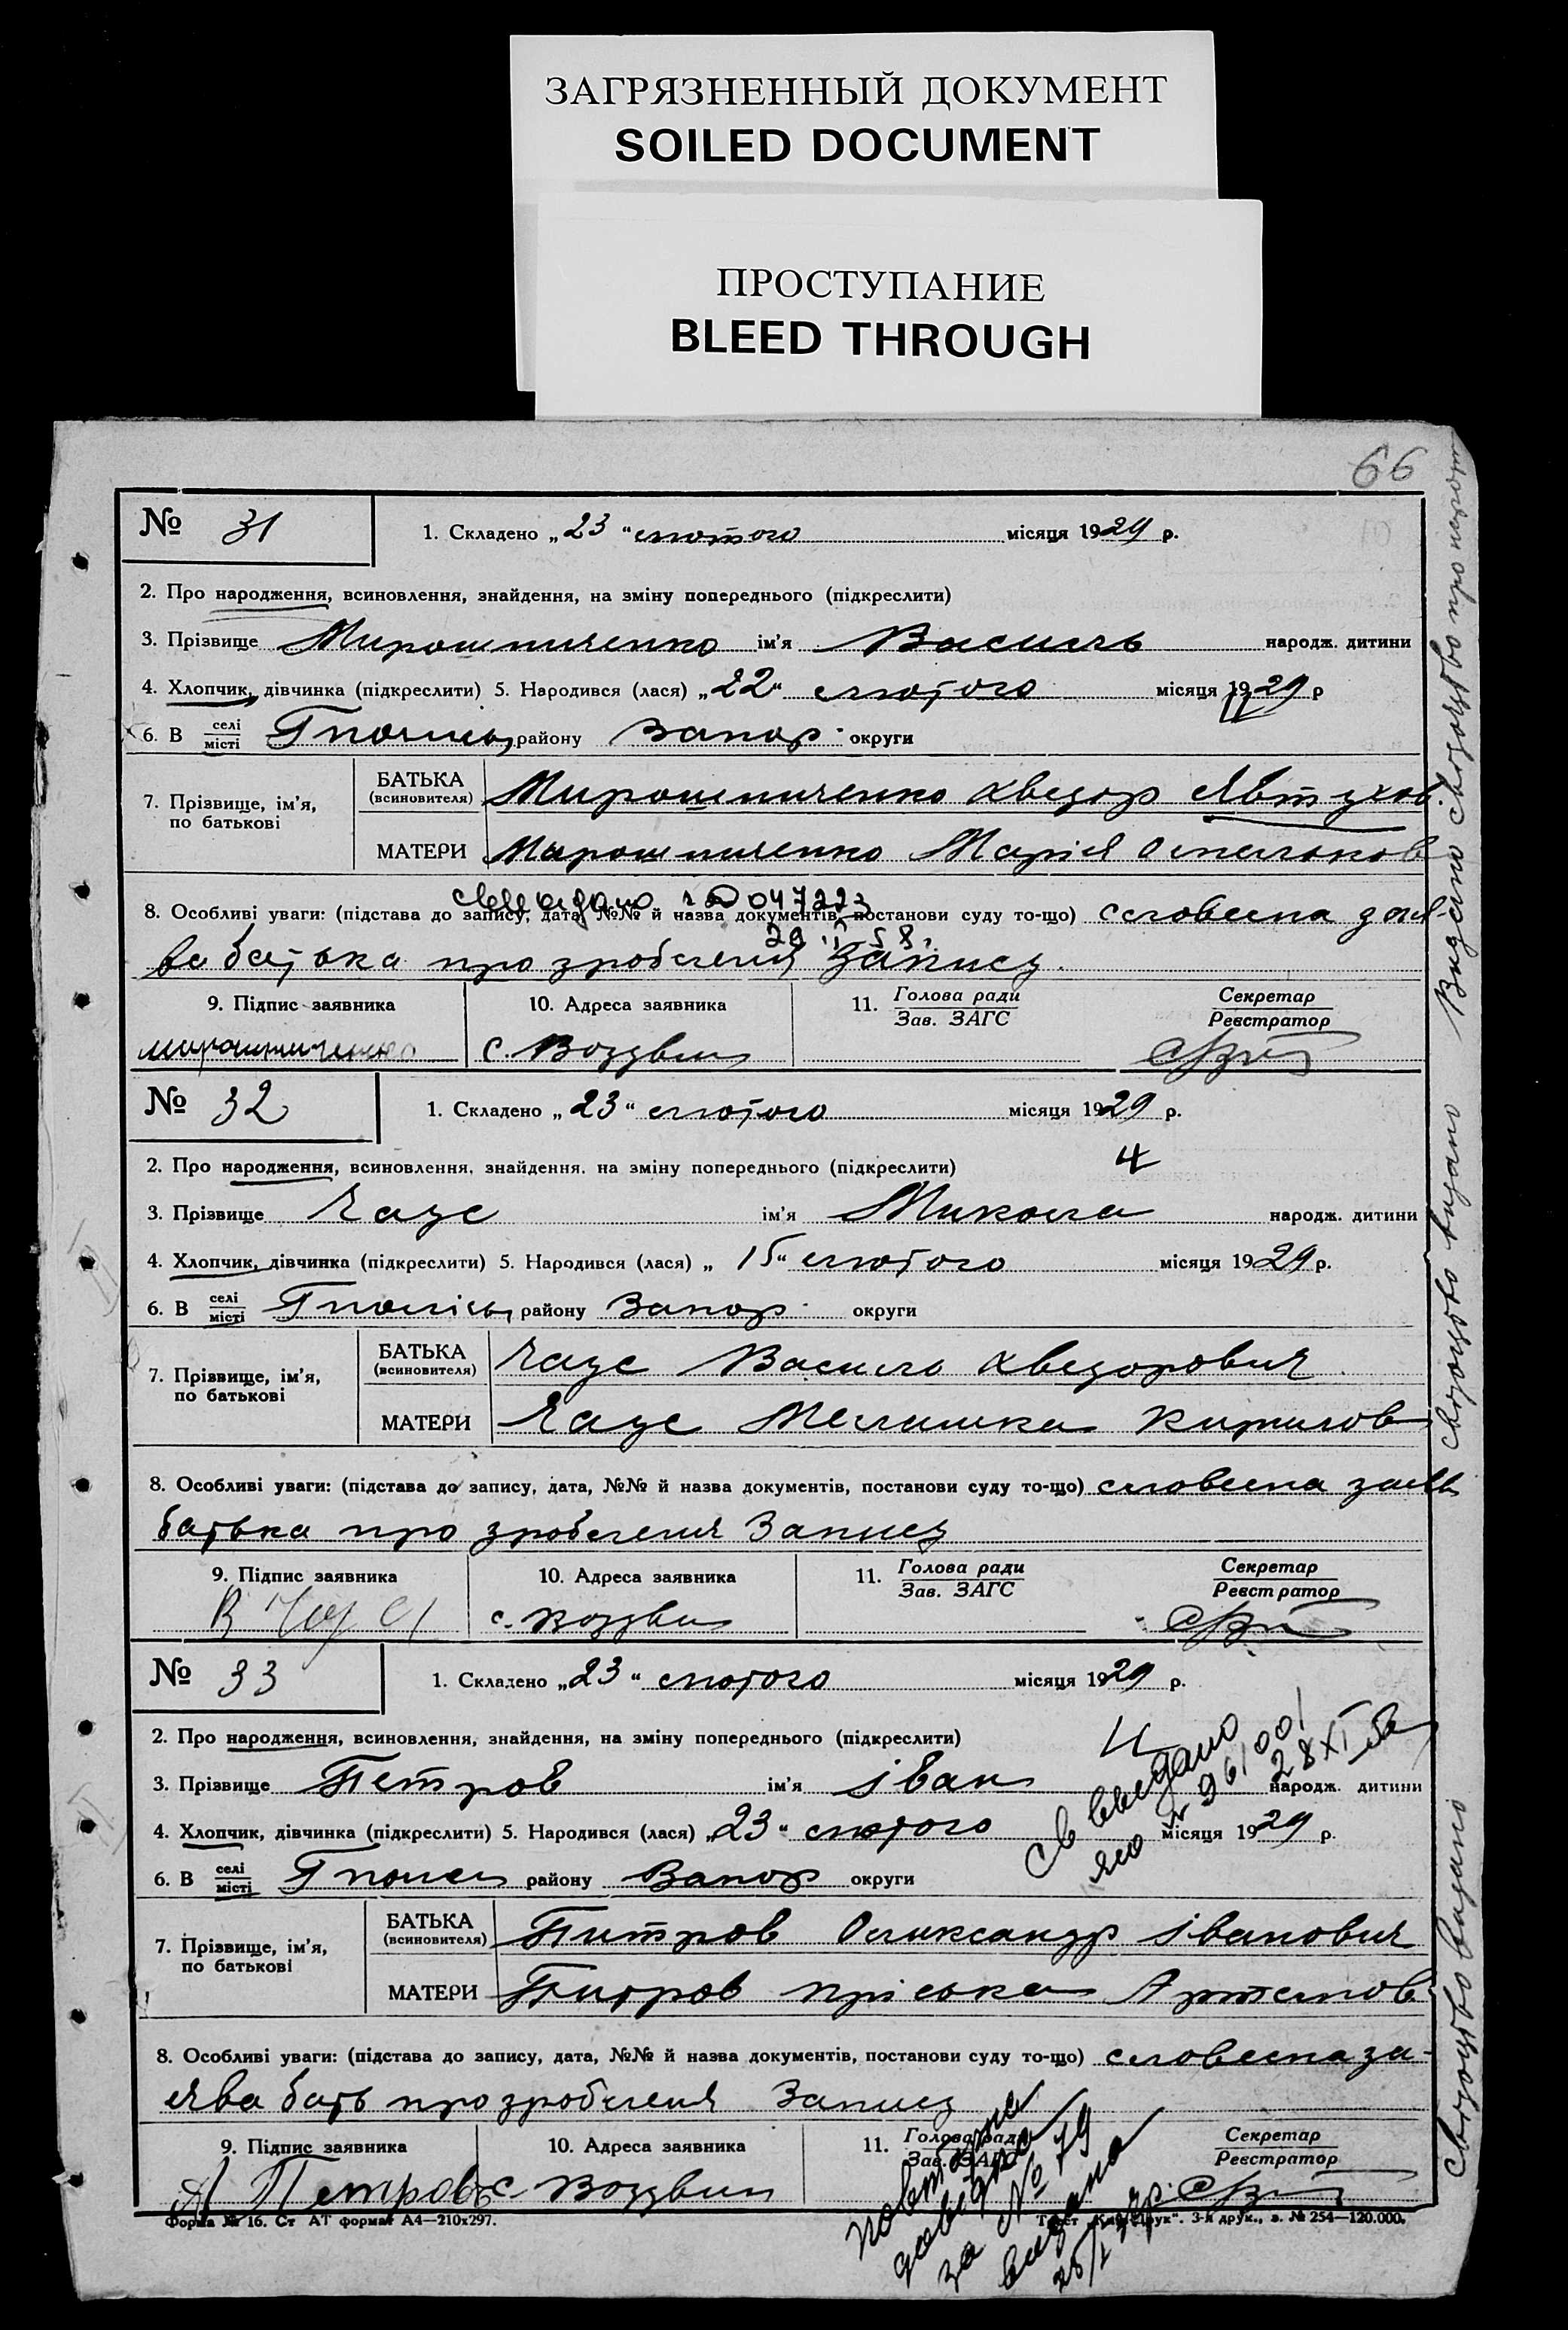 ЗАГРЯЗНЕННЫЙ ДОКУМЕНТ
SOILED DOCUMENT
ПРОСТУПАНИЕ
BLEED THROUGH
66
№ 31 1. Складено „23“ лютого місяця 1929 р.
2. Про народження, всиновлення, знайдення, на зміну попереднього (підкреслити)
3. Прізвище Мирошниченко ім'я Василь народж. дитини
4. Хлопчик, дівчинка (підкреслити) 5. Народився (лася) „22“ лютого місяця 1929 р
6. В селі місті району Запор. округи
7. Прізвище, ім'я, по батькові
БАТЬКА (всиновителя) Мирошниченко Хведор Явтухов
МАТЕРИ Мирошниченко Марія
047223
8. Особливі уваги: (підстава до запису, дата, №№ й назва документів, постанови суду то-що) словесна зая-
ва батька про зроблення запису.
9. Підпис заявника 10. Адреса заявника 11. Голова ради Зав. ЗАГС Секретар Реєстратор
Мирошниченко с. Воздвиж
№ 32 1. Складено „23“ лютого місяця 1929 р.
4
2. Про народження, всиновлення, знайдення, на зміну попереднього (підкреслити)
3. Прізвище Чаус ім'я Микола народж. дитини
4. Хлопчик, дівчинка (підкреслити) 5. Народився (лася) „15“ лютого місяця 1929 р.
6. В селі місті району Запор. округи
7. Прізвище, ім'я, по батькові
БАТЬКА (всиновителя) Чаус Василь Хведорович
МАТЕРИ Чаус Мелашка Кирилов
8. Особливі уваги: (підстава до запису, дата, №№ й назва документів, постанови суду то-що) словесна заява
батька про зроблення запису
9. Підпис заявника 10. Адреса заявника 11. Голова ради Зав. ЗАГС Секретар Реєстратор
с. Воздвиж
№ 33 1. Складено „23“ лютого місяця 1929 р.
2. Про народження, всиновлення, знайдення, на зміну попереднього (підкреслити)
3. Прізвище Петров ім'я Іван народж. дитини
4. Хлопчик, дівчинка (підкреслити) 5. Народився (лася) „23“ лютого місяця 1929 р.
6. В селі місті району Запор округи
7. Прізвище, ім'я, по батькові
БАТЬКА (всиновителя) Питров Олександр Іванович
МАТЕРИ Питров Пріська Артемов
8. Особливі уваги: (підстава до запису, дата, №№ й назва документів, постанови суду то-що) словесна за-
ява бать про зроблення запису
9. Підпис заявника 10. Адреса заявника 11. Голова ради Зав. ЗАГС Секретар Реєстратор
А Петров с. Воздвиж
повторна
довідка
за № 79
видана
Форма № 16. Ст АТ формат А4—210х297.
3-я друк., з. № 254—120.000.
Видано свідоцтво про народж
свідоцтво видано
свідоцтво видано